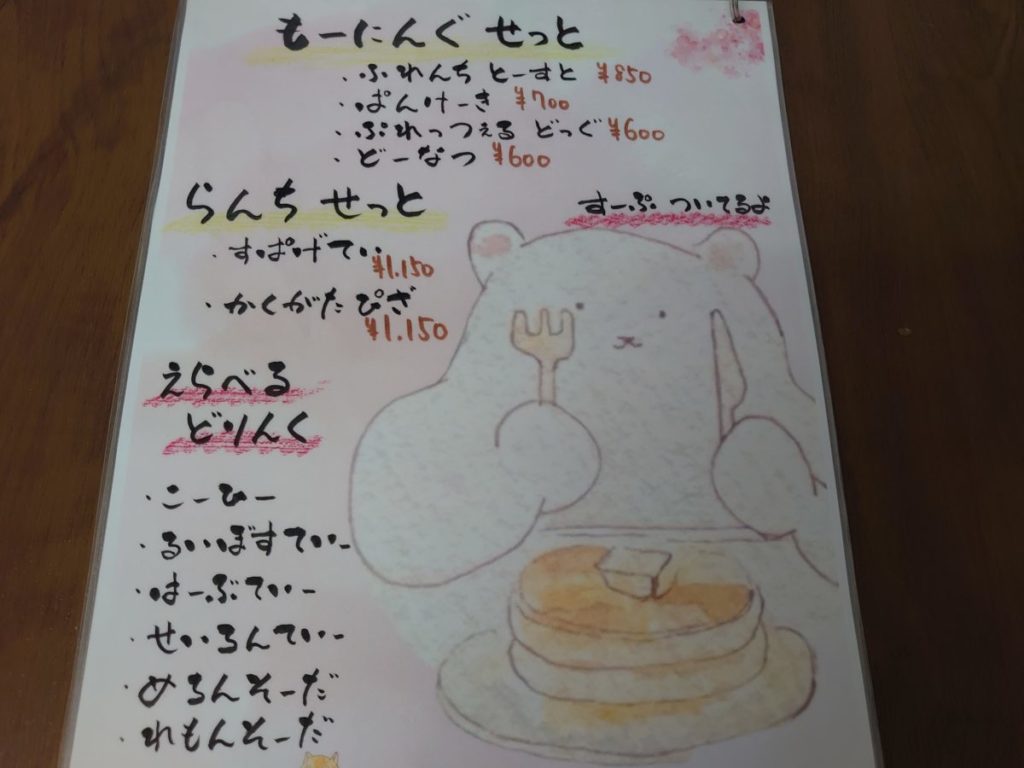 もーにんぐ せっと
・ふれんち とーすと ¥850
・ぱんけーき ¥700
・ぷれっつぇる どっぐ ¥600
・どーなつ ¥600
らんち せっと
すーぷ ついてるよ
・すぱげてぃ ¥1.150
・かくがた ぴざ
¥1.150
えらべる
どりんく
・こーひー
・るいぼすてぃー
・はーぶてぃー
・せいろんてぃー
・めろんそーだ
・れもんそーだ